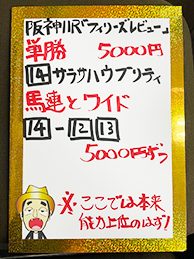 阪神11R「フィリーズレビュー」
単勝 5000円
14 サラサハウプリティ
馬連とワイド
14-12 13
5000円ずつ
※ここでは本来
能力上位のはず!